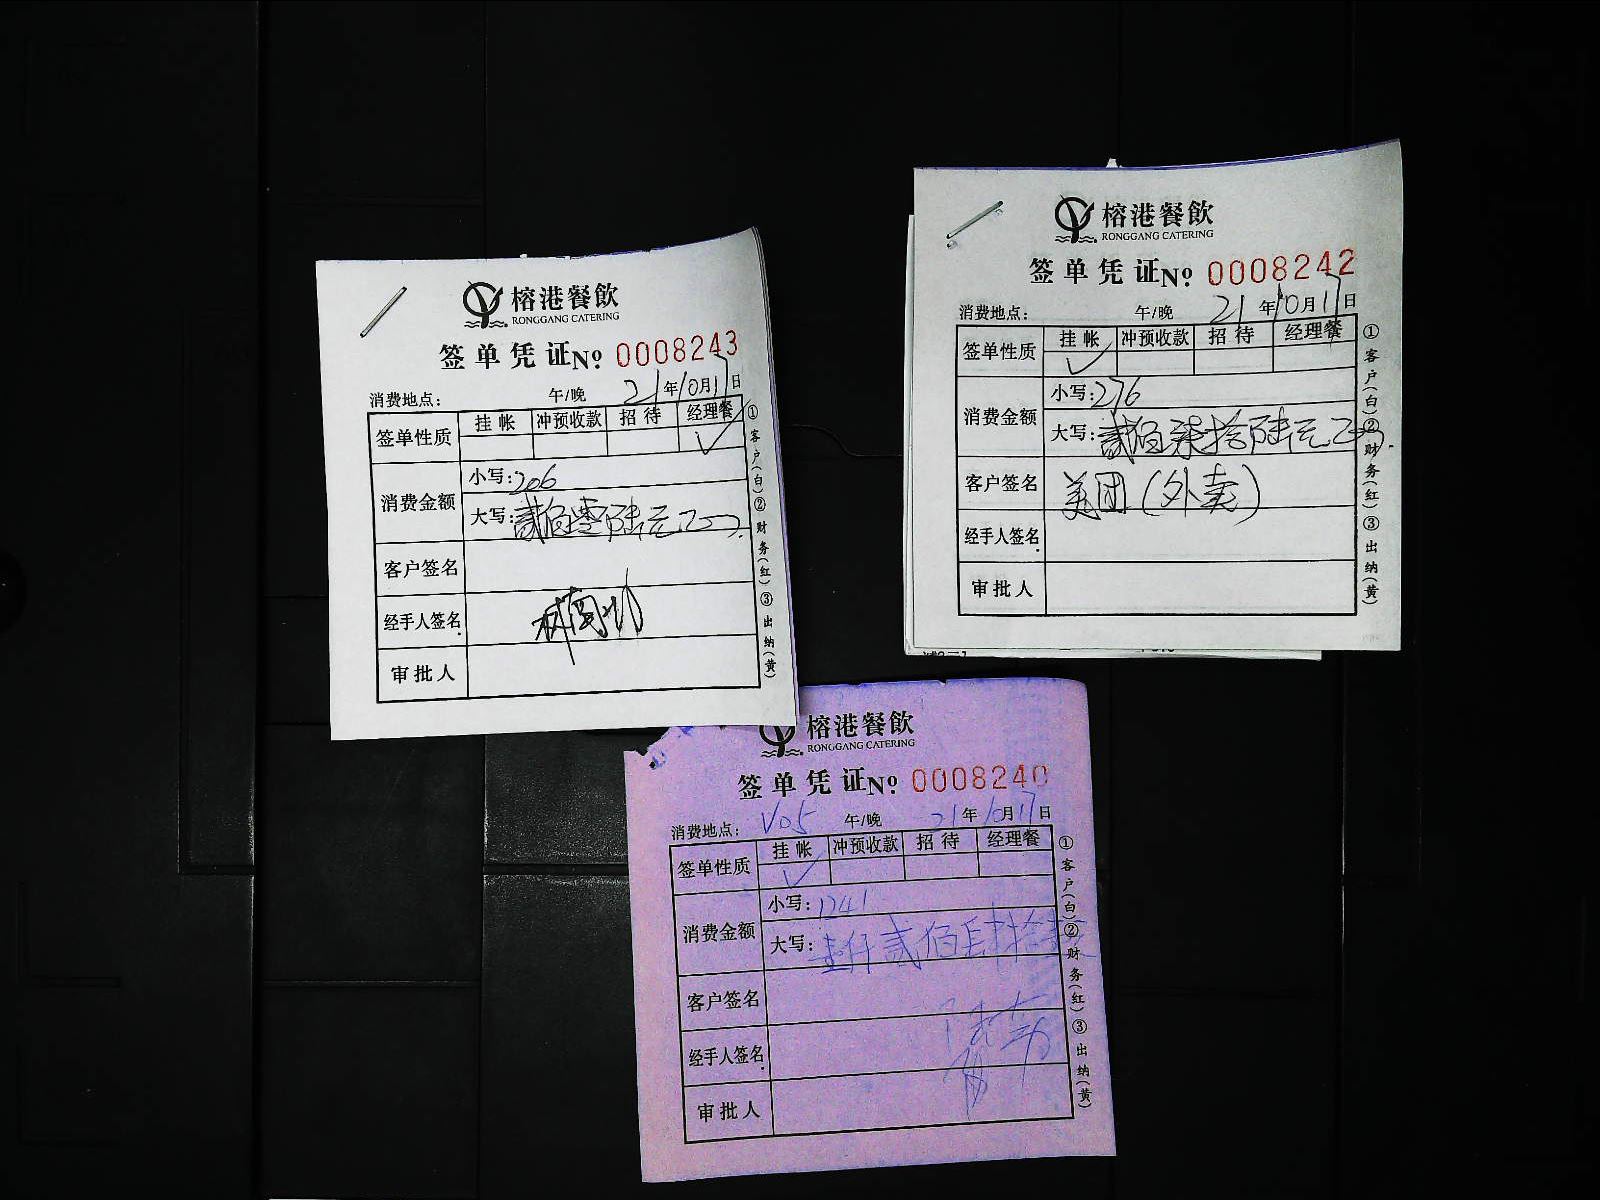 榕港餐飲
RONGGANG CATERING
签单凭证№ 0008243
消费地点: 午/晚 21年10月17日
签单性质 挂帐 冲预收款 招待 经理餐
✓
消费金额 小写:206
大写:贰佰零陆元正
客户签名
经手人签名
审批人
①客户(白)②财务(红)③出纳(黄)
榕港餐飲
RONGGANG CATERING
签单凭证№ 0008242
消费地点: 午/晚 21年10月17日
签单性质 挂帐 冲预收款 招待 经理餐
✓
消费金额 小写:276
大写:贰佰柒拾陆元正
客户签名 美团(外卖)
经手人签名
审批人
①客户(白)②财务(红)③出纳(黄)
榕港餐飲
RONGGANG CATERING
签单凭证№ 0008240
消费地点: V05 午/晚 21年10月17日
签单性质 挂帐 冲预收款 招待 经理餐
✓
消费金额 小写:1241
大写:壹仟贰佰肆拾壹
客户签名
经手人签名
审批人
①客户(白)②财务(红)③出纳(黄)